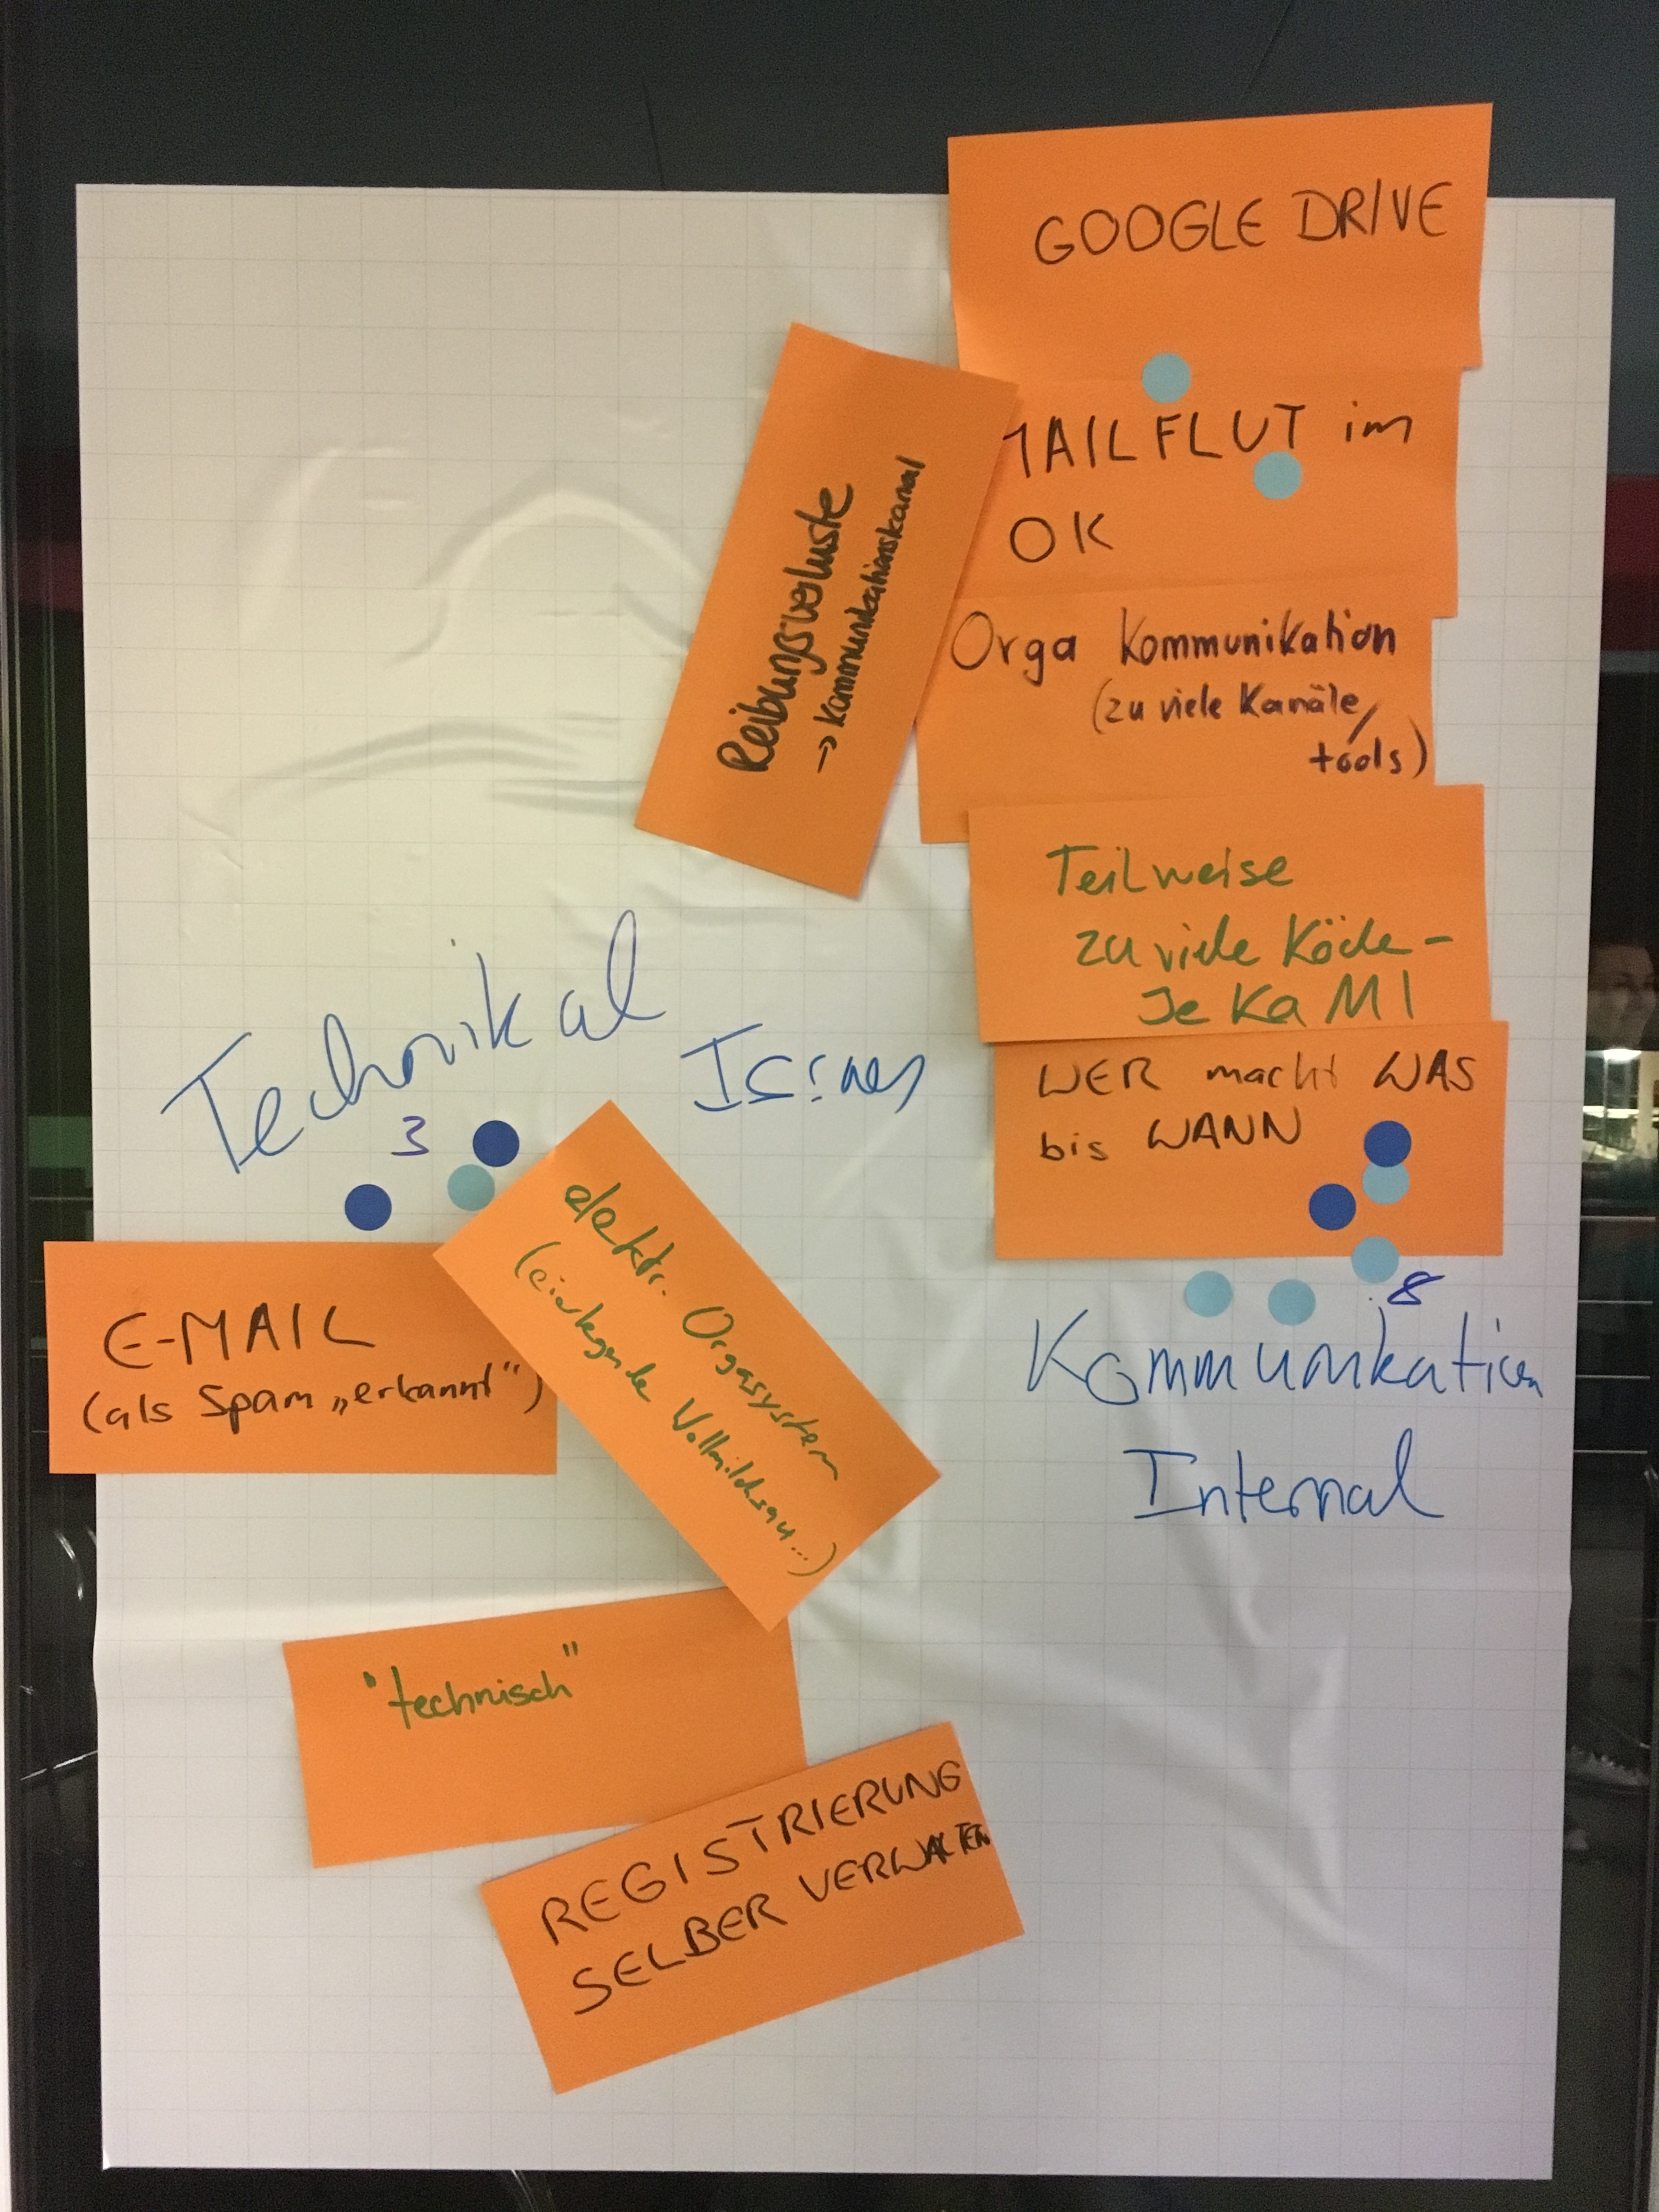 GOOGLE DRIVE
MAILFLUT im
OK
Reibungsverluste
→ Kommunikationskanal
Orga Kommunikation
(zu viele Kanäle/
tools)
Teilweise
zu viele Köche -
JeKaMI
WER macht WAS
bis WANN
8
Kommunikation
Internal
Technikal
3
E-MAIL
(als Spam „erkannt")
elektr. Orgasystem
"technisch"
REGISTRIERUNG
SELBER VERWALTEN